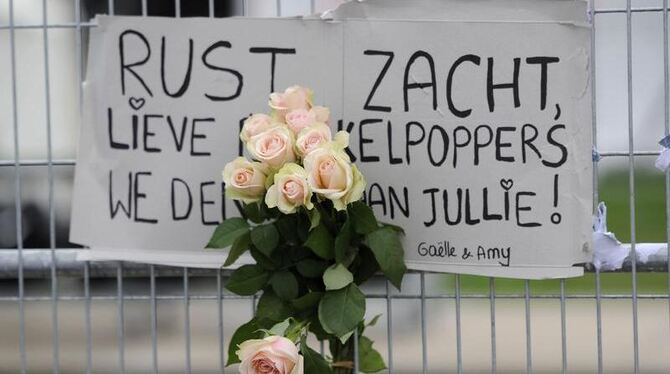 RUST ZACHT,
LIEVE KELPOPPERS
WE DEN AN JULLIE!
Gaëlle & Amy